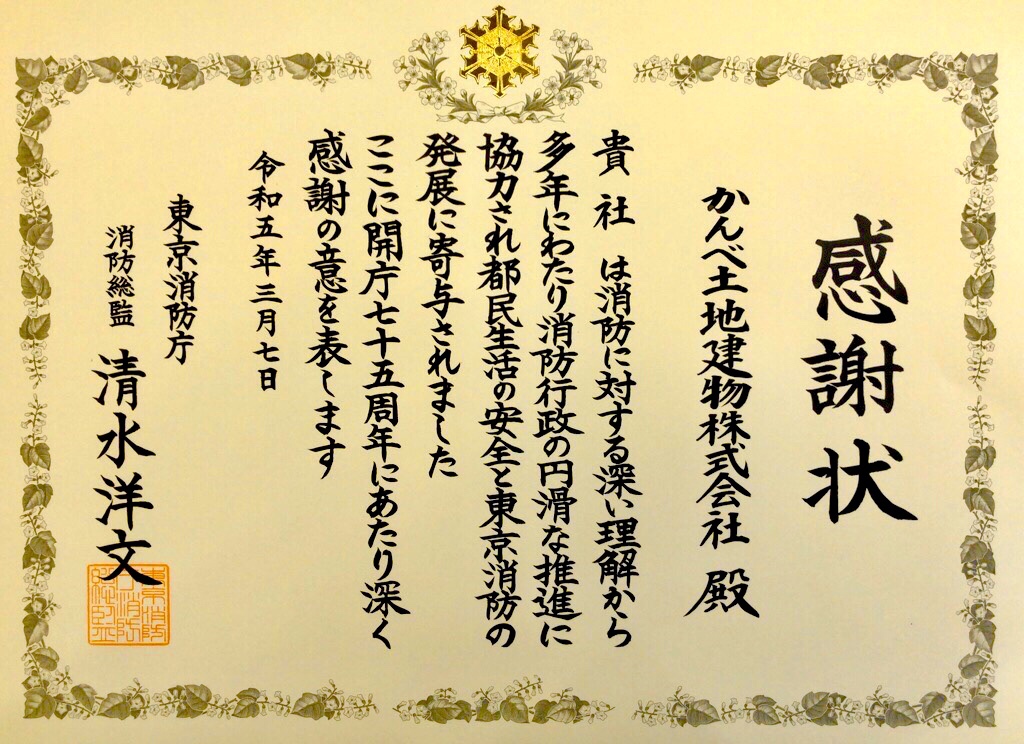 感謝状
かんべ土地建物株式会社 殿
貴社 は消防に対する深い理解から
多年にわたり消防行政の円滑な推進に
協力され都民生活の安全と東京消防の
発展に寄与されました
ここに開庁七十五周年にあたり深く
感謝の意を表します
令和五年三月七日
東京消防庁
消防総監 清水洋文